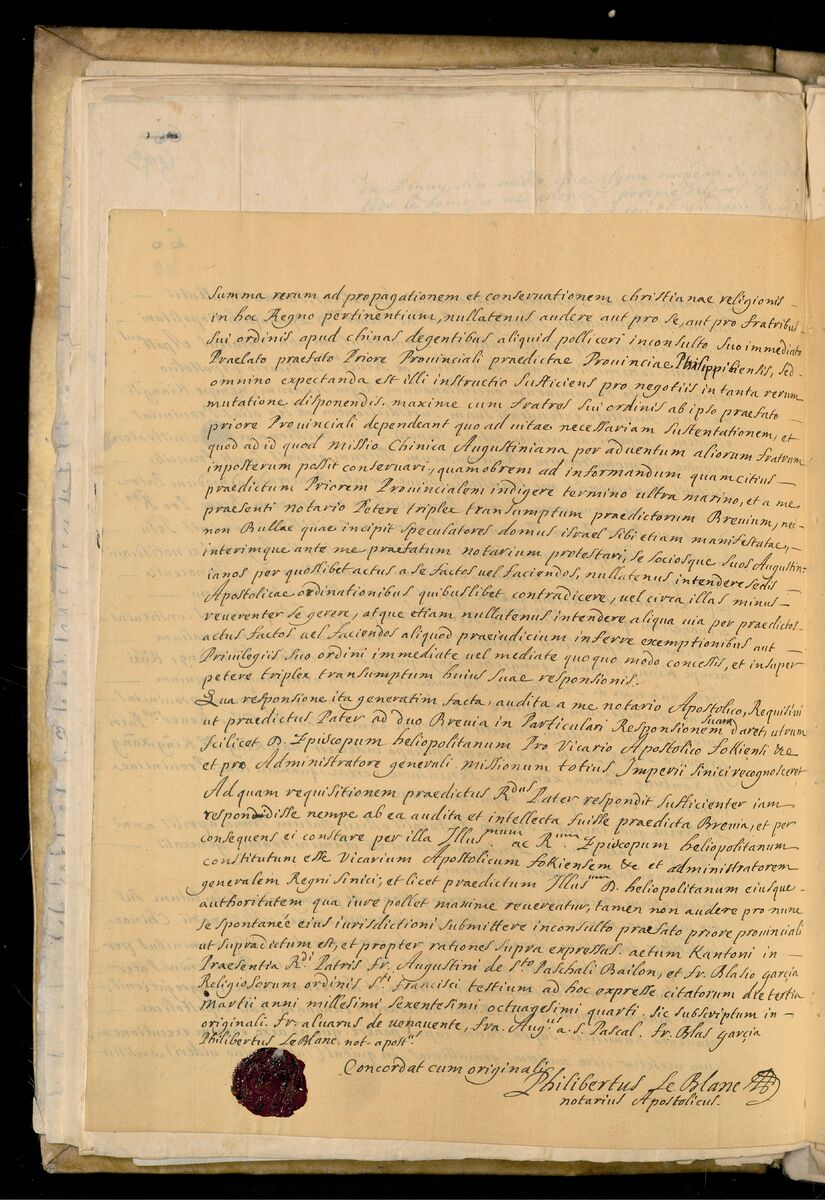 summa rerum ad propagationem et conservationem christianae religionis
in hoc Regno pertinentium, nullatenus audere aut pro se, aut pro fratribus
sui ordinis apud chinas degentibus aliquid polliceri inconsulto suo immediato
Praelato praefato Priore Provinciali praedictae Provinciae Philippinensis, sed
omnino expectanda est illi instructio sufficiens pro negotiis in tanta rerum
mutatione disponendis. maxime cum fratres sui ordinis ab ipso praefato
priore Provinciali dependeant quo ad vitae necessariam sustentationem, et
quod ad id quod missio Chinica Augustiniana per adventum aliorum fratrum
inposterum possit conservari, quamobrem ad informandum quam citius
praedictum Priorem Provincialem indigere termino ultra marino, et a me
praesenti notario Petere triplex transumptum praedictorum Brevium, nec
non Bullae quae incipit speculatores domus israel sibi etiam manifestatae,
interimque ante me praefatum notarium protestari, se sociosque suos Augustin-
ianos per quoslibet actus a se factos vel faciendos, nullatenus intendere sedis
Apostolicae ordinationibus quibuslibet contradicere, vel circa illas minus
reverenter se gerere, atque etiam nullatenus intendere aliqua via per praedictos
actus factos vel faciendos aliquod praeiudicium inferre exemptionibus aut
Privilegiis suo ordini immediate vel mediate quoquo modo concessis, et insuper
petere triplex transumptum huius suae responsionis.
Qua responsione ita generatim facta, audita a me notario Apostolico, Requisivi
ut praedictus Pater ad duo Brevia in Particulari Responsionem suam daret, utrum
scilicet D. Episcopum heliopolitanum Pro Vicario Apostolico fokiensi &c
et pro Administratore generali missionum totius Imperii sinici recognosceret
Ad quam requisitionem praedictus Rdus Pater respondit sufficienter iam
respondisse nempe ab ea audita et intellecta fuisse praedicta Brevia, et per
consequens ei constare per illa Illusmum ac Rmum Episcopum heliopolitanum
constitutum esse Vicarium Apostolicum fokiensem &c et administratorem
generalem Regni sinici, et licet praedictum Illusmum D. heliopolitanum eiusque
authoritatem qua iure pollet maxime revereatur, tamen non audere pro nunc
se spontaneè eius iurisdictioni submittere inconsulto praefato priore provinciali
ut supradictum est, et propter rationes supra expressas. actum Kantoni in
Praesentia Rdi Patris fr. Augustini de Sto Paschali Bailon, et fr. Blasio garçia
Religiosorum ordinis Sti francisci testium ad hoc expresse citatorum die tertia
Martii anni millesimi sexentesimi octuagesimi quarti. sic subscriptum in
originali. fr. alvarus de venavente, fra. Aug. a. s. Pascal. fr. Blas garçia
Philibertus Le Blanc. not. apost.us
Concordat cum originali
Philibertus Le Blanc
notarius Apostolicus.